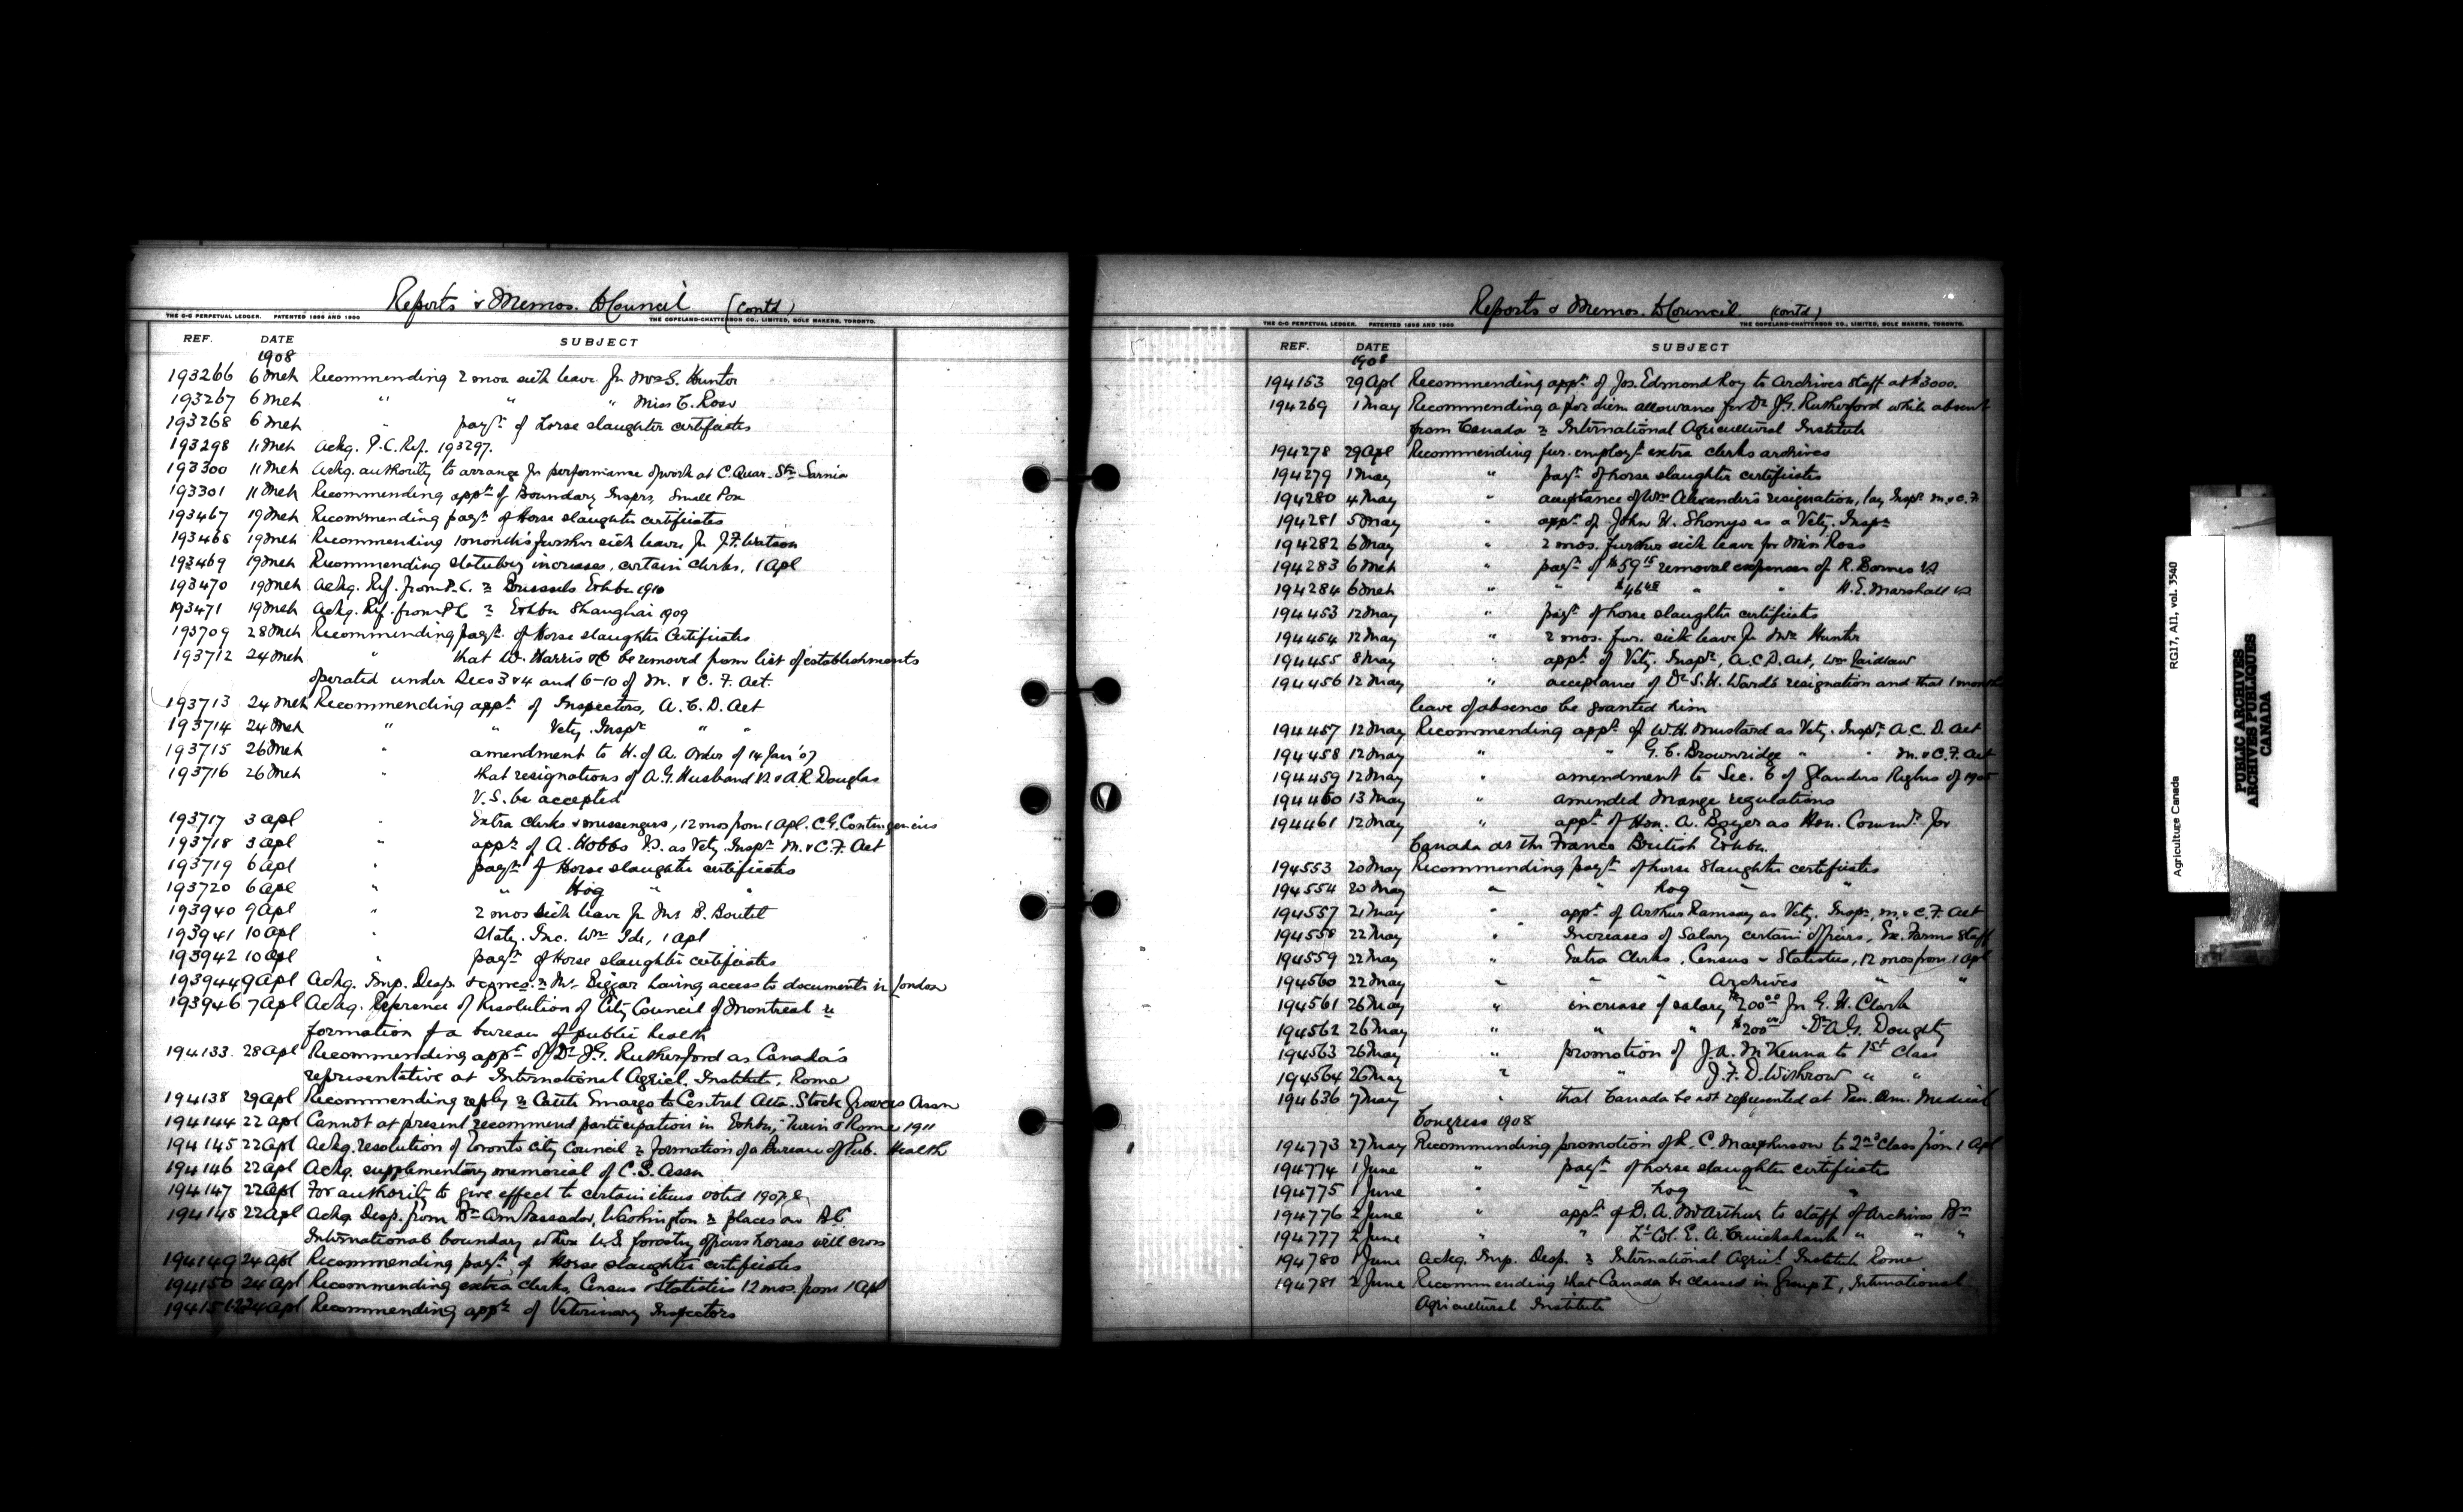 Reports & Memos. to Council (Contd)
THE C-C PERPETUAL LEDGER. PATENTED 1896 AND 1900 THE COPELAND-CHATTERSON CO., LIMITED, SOLE MAKERS, TORONTO.
REF. DATE SUBJECT
1908
193266 6 Mch Recommending 2 mos sick leave for Mrs S. Hunter
193267 6 Mch " " " Miss C. Ross
193268 6 Mch " payt. of horse slaughter certificates
193298 11 Mch Ackg. P.C. Ref. 193297.
193300 11 Mch Ackg. authority to arrange for performance of work at C. Quar. Stn. Sarnia
193301 11 Mch Recommending appt. of Boundary Insprs, Small Pox
193467 19 Mch Recommending payt. of Horse slaughter certificates
193468 19 Mch Recommending 1 month's further sick leave for J.F. Watson
193469 19 Mch Recommending statutory increases, certain clerks, 1 Apl
193470 19 Mch Ackg. Ref. from P.C. re Brussels Exhbn 1910
193471 19 Mch Ackg. Ref. from P.C. re Exhbn Shanghai 1909
193709 28 Mch Recommending payt. of Horse slaughter Certificates
193712 24 Mch " that W. Harris & Co be removed from list of establishments
operated under Secs 3 & 4 and 6-10 of M. & C. F. Act.
193713 24 Mch Recommending appt. of Inspectors, A. C. D. Act
193714 24 Mch " " Vety. Inspr " "
193715 26 Mch " amendment to H. of A. Order of 14 Jan '07
193716 26 Mch " that resignations of A.G. Husband VS & A.R. Douglas
V.S. be accepted
193717 3 Apl " Extra clerks & messengers, 12 mos from 1 Apl. C.G. Contingencies
193718 3 Apl " appt. of A. Hobbs V.S. as Vety. Inspr. M. & C.F. Act
193719 6 Apl " payt. of Horse slaughter certificates
193720 6 Apl " " Hog " "
193940 9 Apl " 2 mos sick leave for Mr B. Boutet
193941 10 Apl " State. Inc. Wm Ide, 1 Apl
193942 10 Apl " payt. of Horse slaughter certificates
193944 9 Apl Ackg. Imp. Desp. & corres. re Mr. Biggar having access to documents in London
193946 7 Apl Ackg. Reference of Resolution of City Council of Montreal re
formation of a bureau of public health
194133 28 Apl Recommending appt. of Dr J.G. Rutherford as Canada's
representative at International Agricl. Institute, Rome
194138 29 Apl Recommending reply re Cattle Emargo to Central Alta. Stock Growers Assn
194144 22 Apl Cannot at present recommend participation in Exhbn, Turin & Rome 1911
194145 22 Apl Ackg. resolution of Toronto City Council re Formation of a Bureau of Pub. Health
194146 22 Apl Ackg. supplementary memorial of C.S. Assn
194147 22 Apl For authority to give effect to certain items voted 1907-8
194148 22 Apl Ackg. Desp. from Br. Ambassador, Washington re places on B.C.
International boundary where U.S. forestry officers horses will cross
194149 24 Apl Recommending payt. of Horse slaughter certificates
194150 24 Apl Recommending extra clerks, Census & Statistics 12 mos. from 1 Apl
194151-2 24 Apl Recommending appts of Veterinary Inspectors
Reports & Memos. to Council. (contd)
THE C-C PERPETUAL LEDGER. PATENTED 1896 AND 1900 THE COPELAND-CHATTERSON CO., LIMITED, SOLE MAKERS, TORONTO.
REF. DATE SUBJECT
1908
194153 29 Apl Recommending appt. of Jos. Edmond Roy to Archives staff at $3000.
194269 1 May Recommending a per diem allowance for Dr J.G. Rutherford while absent
from Canada re International Agricultural Institute
194278 29 Apl Recommending fur. employt. extra clerks archives
194279 1 May " payt. of horse slaughter certificates
194280 4 May " acceptance of Wm Alexander's resignation, lay Inspr. M. & C. F.
194281 5 May " appt. of John H. Shonyo as a Vety. Inspr
194282 6 May " 2 mos. further sick leave for Miss Ross
194283 6 Mch " payt. of $59.15 removal expenses of R. Barnes VS
194284 6 Mch " " $46.48 " " H.E. Marshall VS
194453 12 May " payt. of horse slaughter certificates
194454 12 May " 2 mos. fur. sick leave for Mrs Hunter
194455 8 May " appt. of Vety. Inspr., A.C.D. Act, Wm Laidlaw
194456 12 May " acceptance of Dr S.H. Ward's resignation and that 1 month
leave of absence be granted him
194457 12 May Recommending appt. of W.H. Mustard as Vety. Inspr. A.C.D. Act
194458 12 May " " G. C. Brownridge " " M. & C.F. Act
194459 12 May " amendment to Sec. 6 of Glanders Reglns of 1905
194460 13 May " amended mange regulations
194461 12 May " appt. of Hon. A. Boyer as Hon. Commr. for
Canada at the Franco British Exhbn.
194553 20 May Recommending payt. of horse slaughter certificates
194554 20 May " " hog " "
194557 21 May " appt. of Arthur Ramsay as Vety. Inspr, M. & C. F. Act
194558 22 May " Increases of Salary certain officers, Ex. Farms Staff
194559 22 May " Extra Clerks, Census & Statistics, 12 mos from 1 Apl
194560 22 May " " " Archives " "
194561 26 May " increase of salary $200.00 for G. H. Clark
194562 26 May " " " $200.00 " Dr A.G. Doughty
194563 26 May " promotion of J.A. McKenna to 1st Class
194564 26 May " " J.F.D. Withrow " "
194636 7 May " that Canada be not represented at Pan. Am. Medical
Congress 1908
194773 27 May Recommending promotion of R. C. Macpherson to 2nd Class from 1 Apl
194774 1 June " payt. of horse slaughter certificates
194775 1 June " " hog " "
194776 2 June " appt. of D. A. McArthur to staff of Archives Bn
194777 2 June " " Lt. Col. E. A. Cruickshank " " "
194780 1 June Ackg. Imp. Desp. re International Agricl. Institute Rome
194781 2 June Recommending that Canada be classed in Group I, International
Agricultural Institute
Agriculture Canada RG17, AII, vol. 3540
PUBLIC ARCHIVES
ARCHIVES PUBLIQUES
CANADA